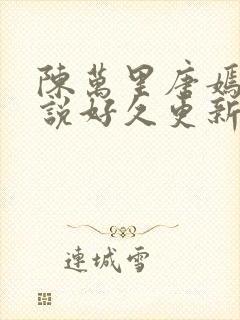 陳萬里唐嫣
說好久更新
連城雪